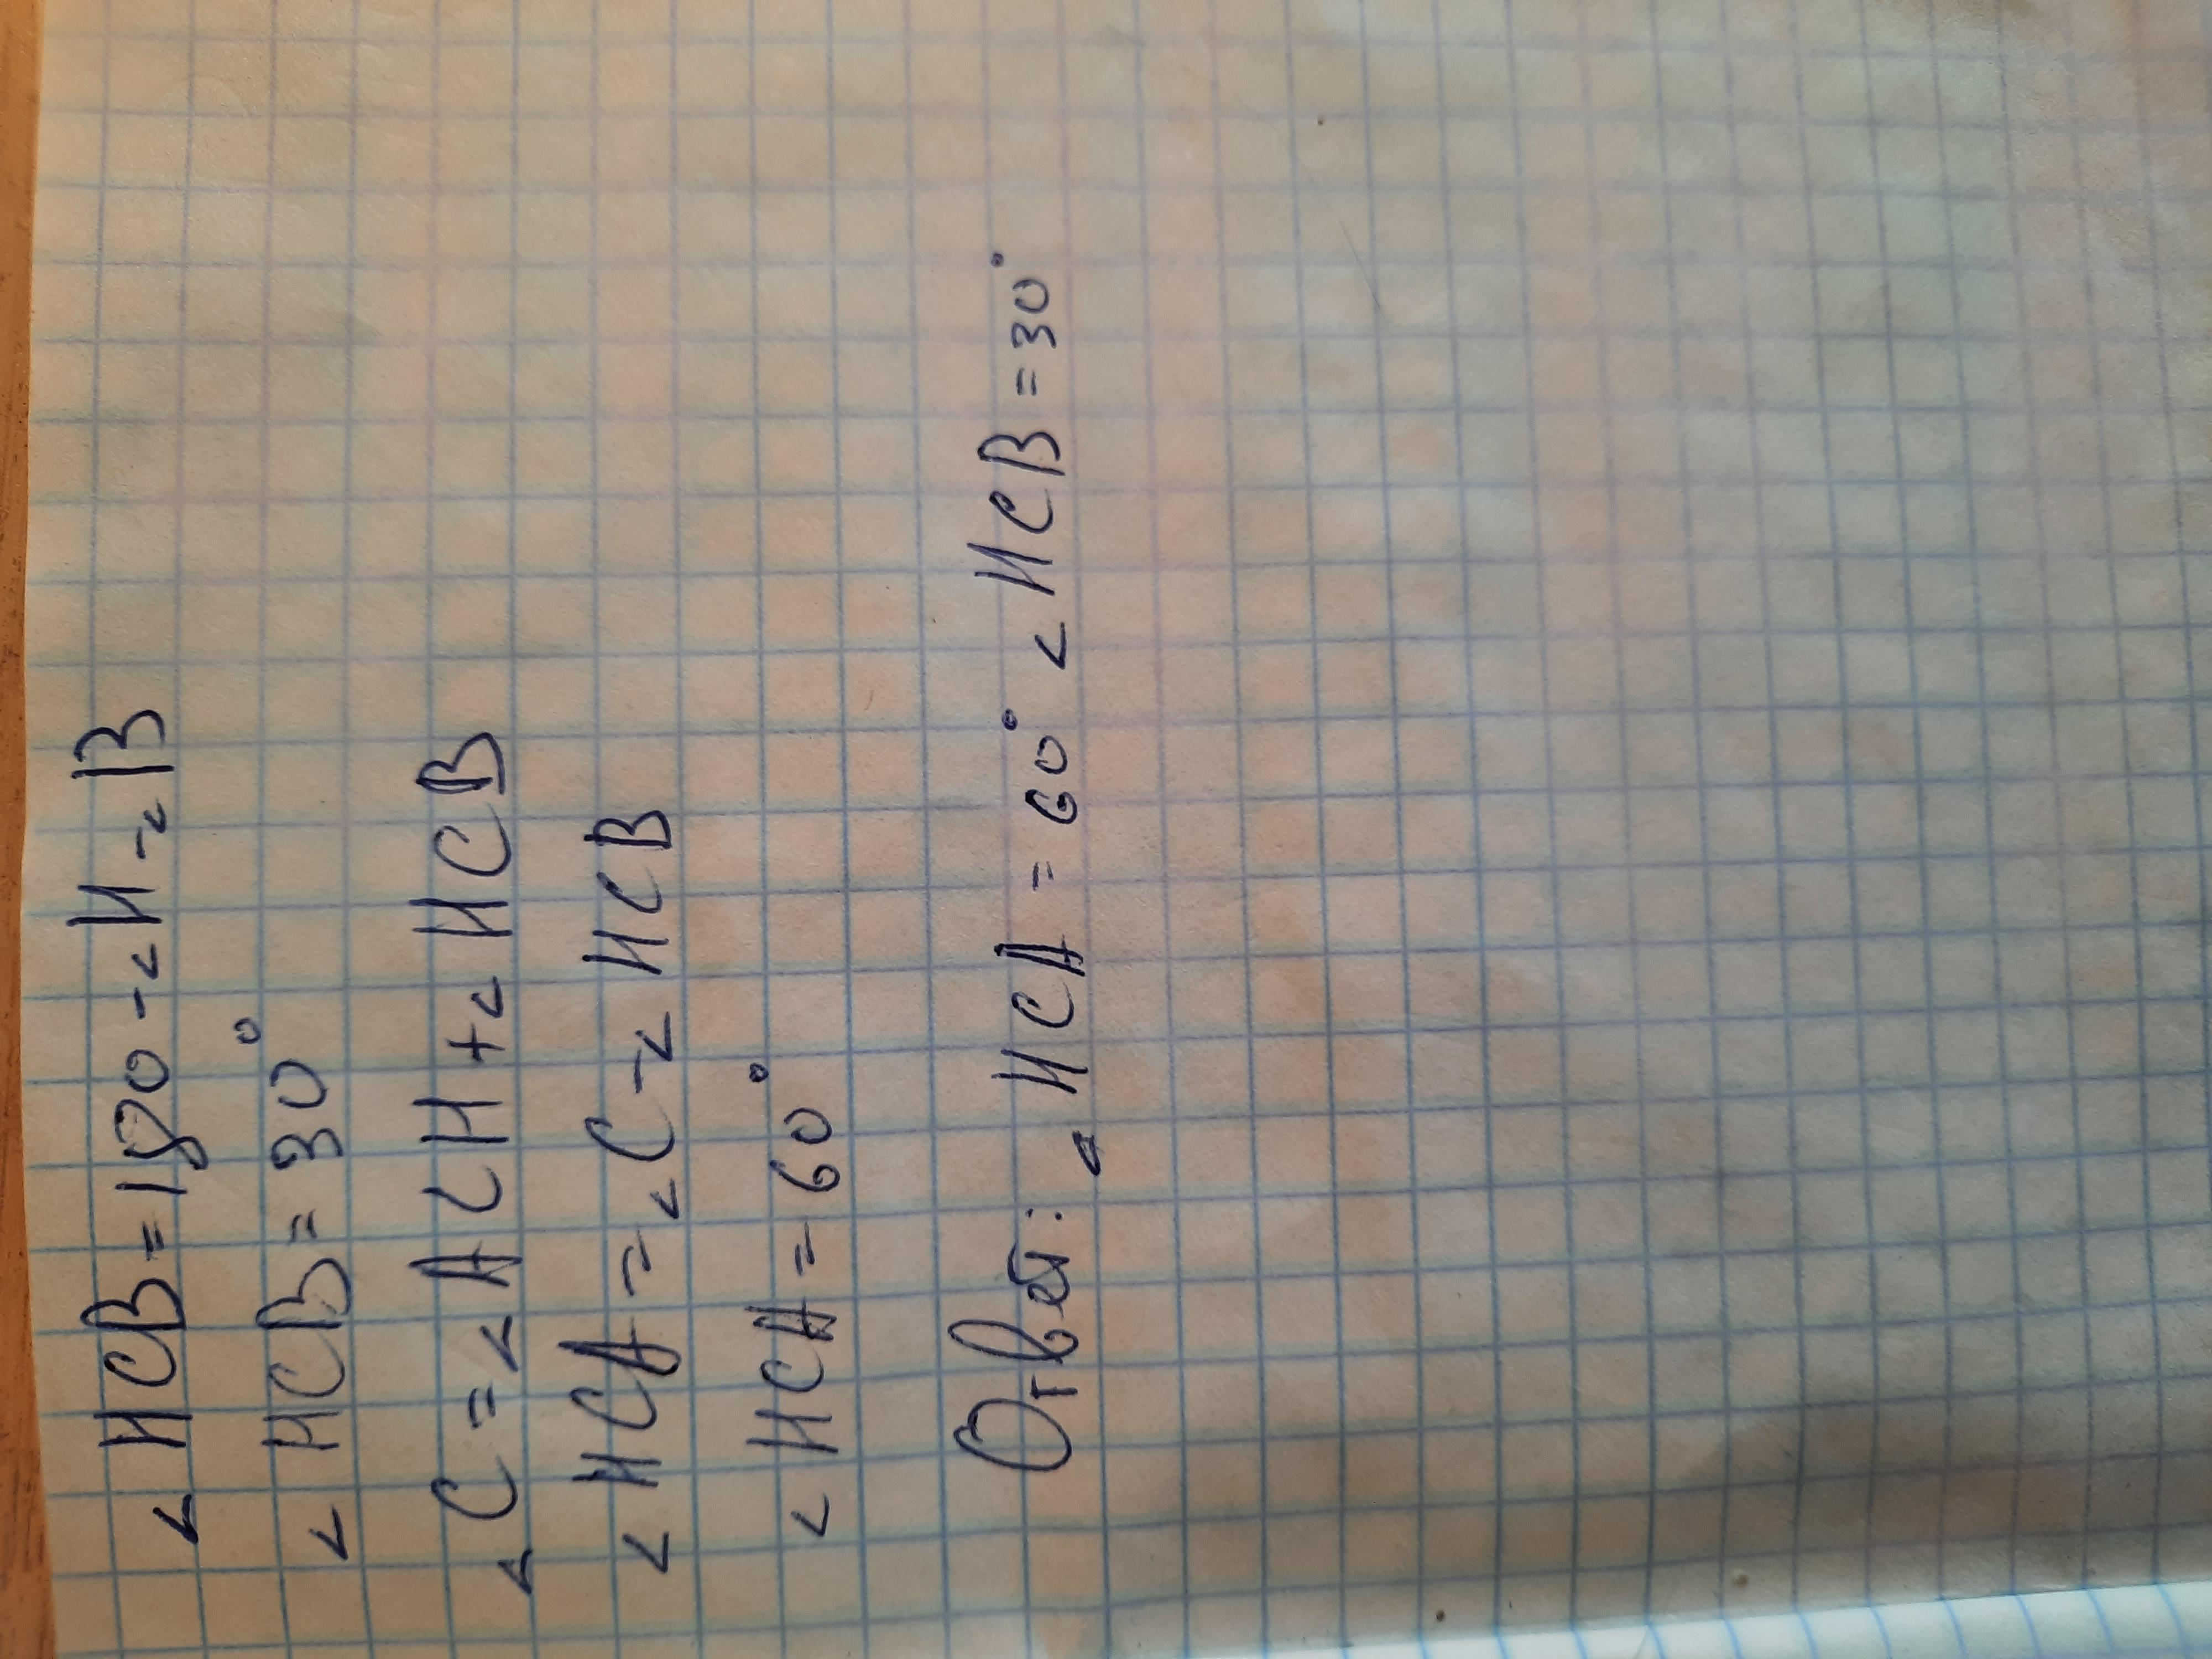 < HCB = 180 - < H - < B
< HCB = 30°
< C = < ACH + < HCB
< HCA = < C - < HCB
< HCA = 60°
Ответ: < HCA = 60° < HCB = 30°